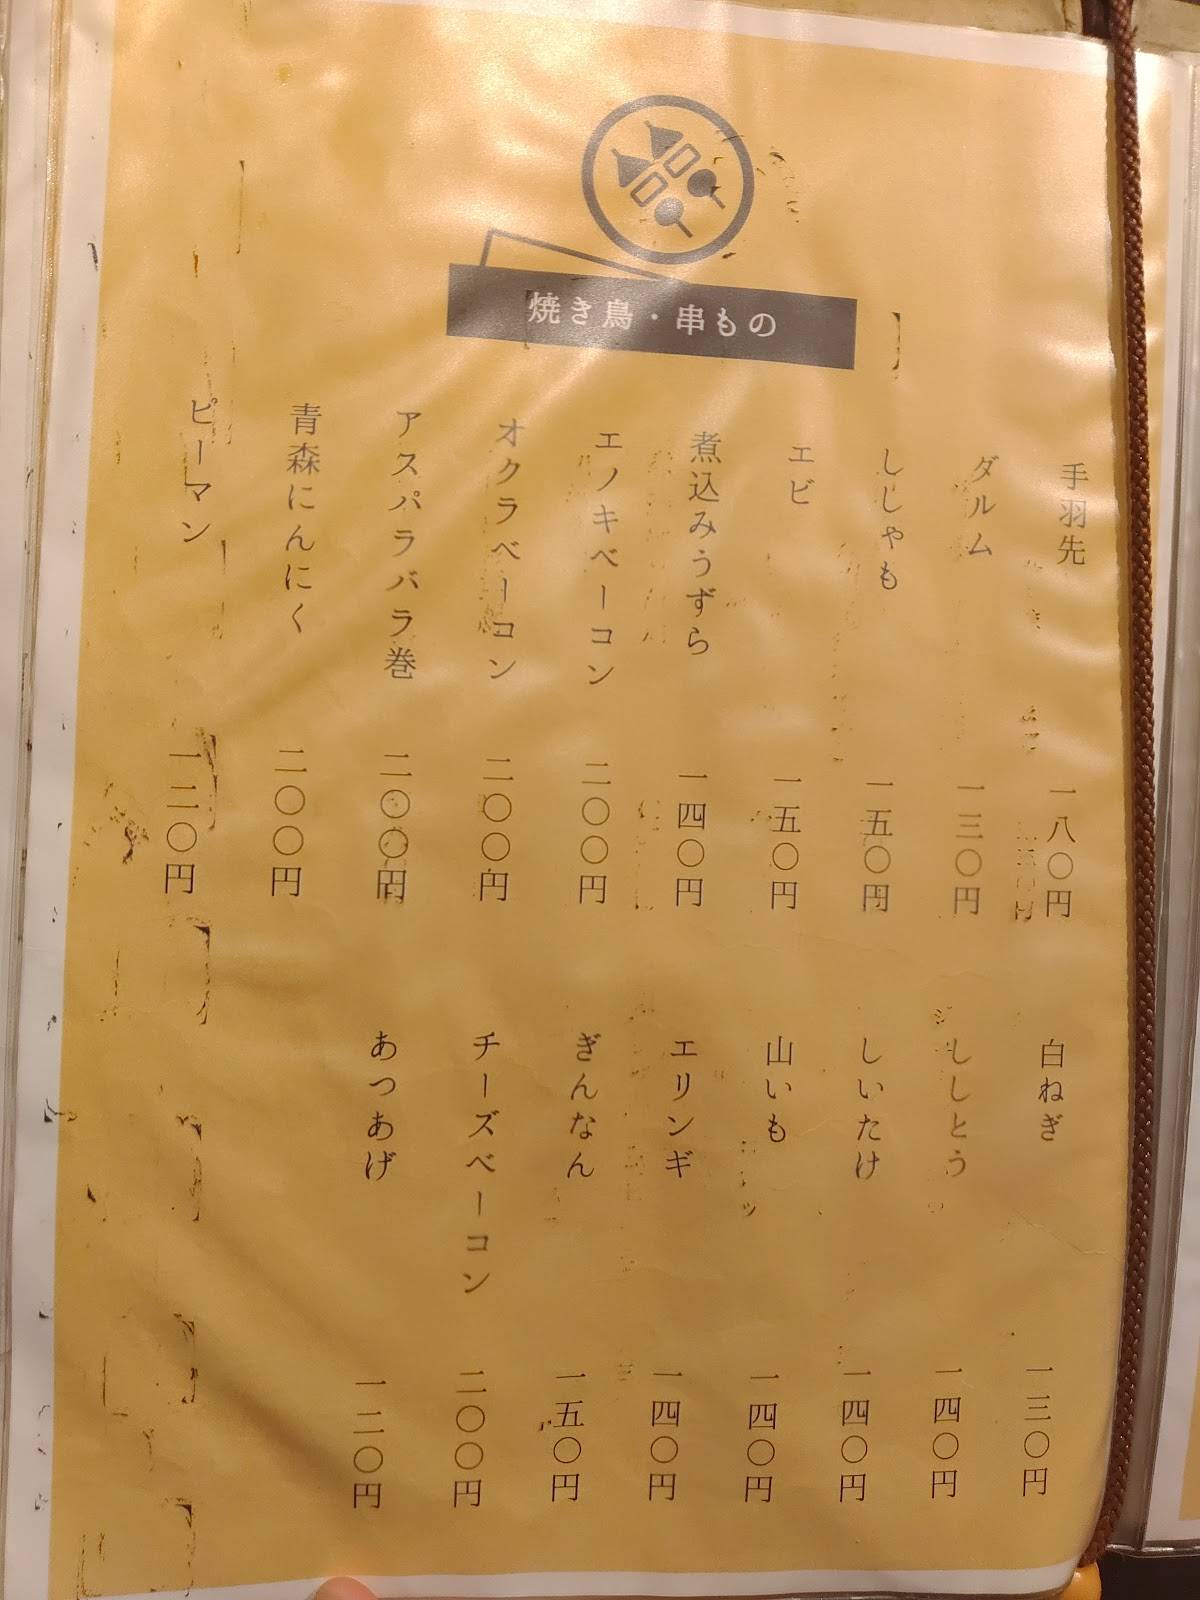 焼き鳥・串もの
手羽先 一八〇円
ダルム 一三〇円
ししゃも 一五〇円
エビ 一五〇円
煮込みうずら 一四〇円
エノキベーコン 二〇〇円
オクラベーコン 二〇〇円
アスパラバラ巻 二〇〇円
青森にんにく 二〇〇円
ピーマン 一二〇円
白ねぎ 一三〇円
ししとう 一四〇円
しいたけ 一四〇円
山いも 一四〇円
エリンギ 一四〇円
ぎんなん 一五〇円
チーズベーコン 二〇〇円
あつあげ 一二〇円